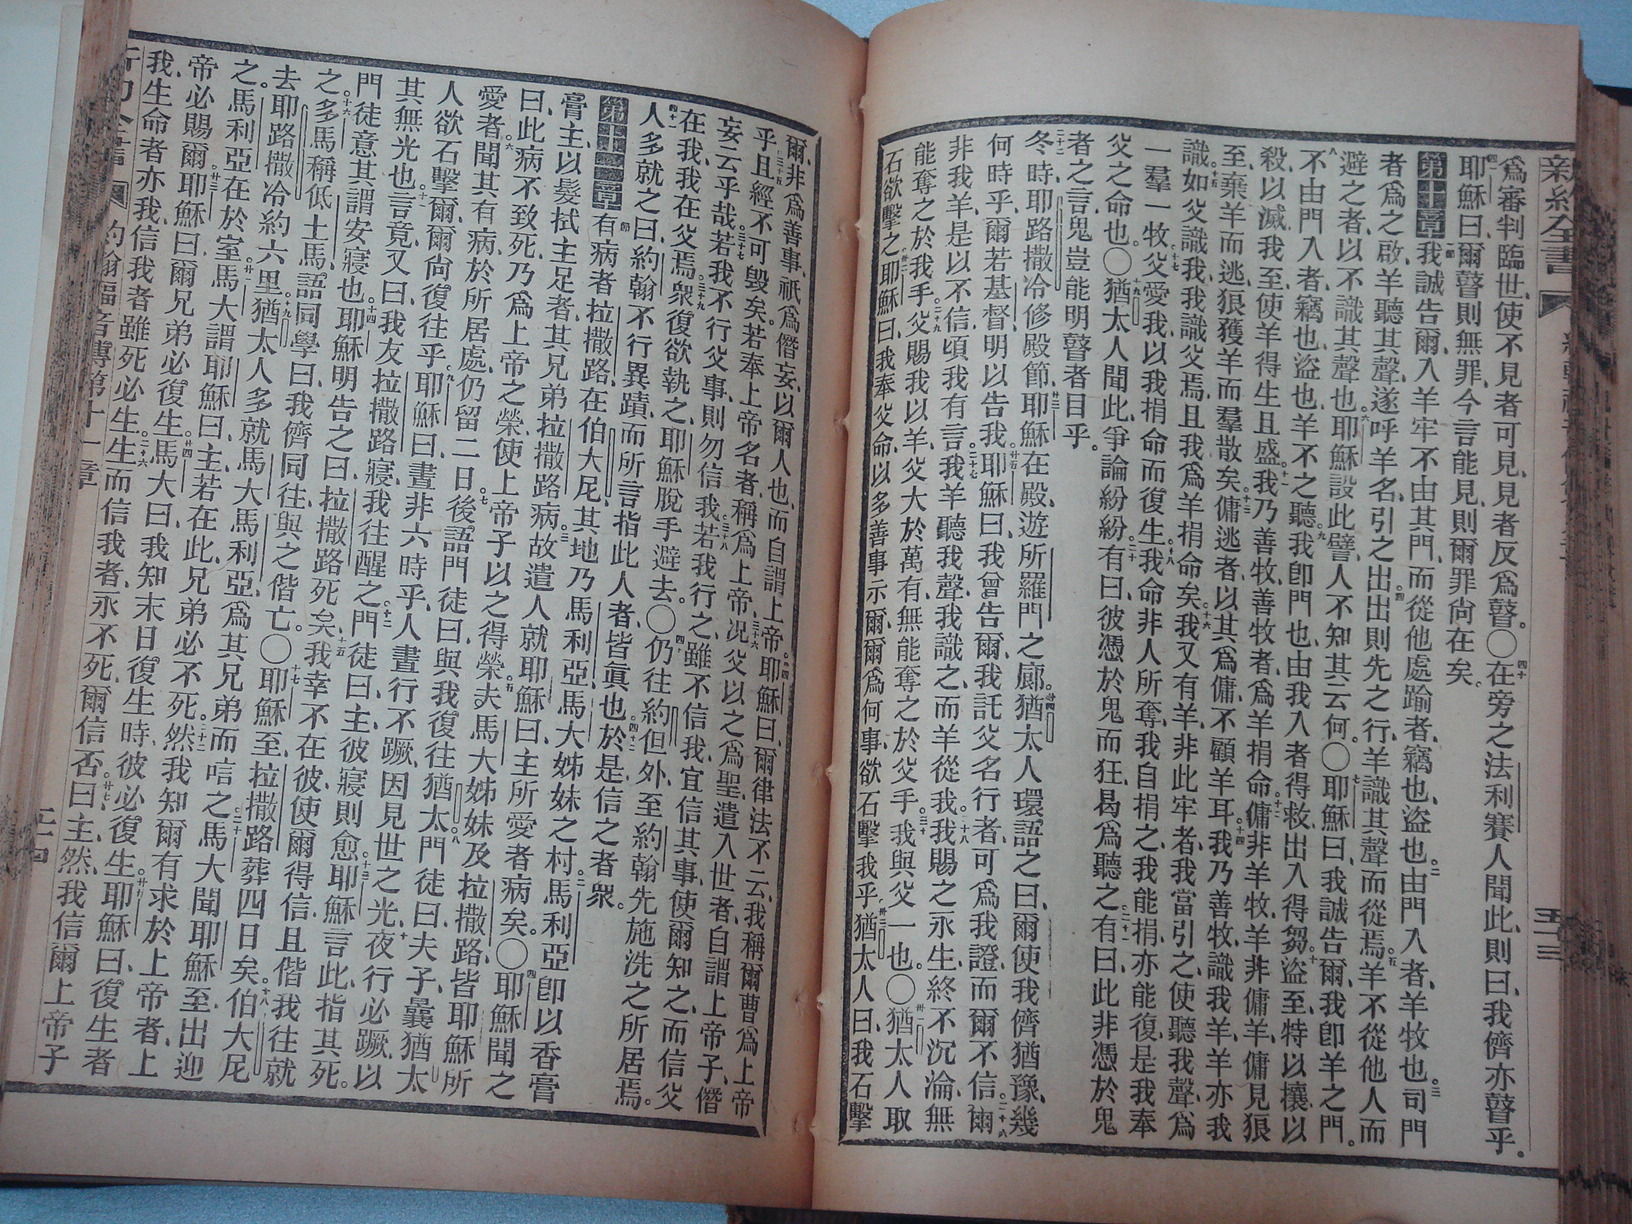 新約全書
爲審判臨世、使不見者可見、見者反爲瞽。〇四十在旁之法利賽人聞此、則曰、我儕亦瞽乎。
四一耶穌曰、爾瞽則無罪、今言能見、則爾罪尚在矣。
第十章 一節我誠告爾、入羊牢不由其門、而從他處踰者、竊也、盜也。二由門入者、羊牧也。三司門
者爲之啟、羊聽其聲、遂呼羊名引之出。四出則先之行、羊識其聲而從焉。五羊不從他人而
避之者、以不識其聲也。六耶穌設此譬、人不知其云何。〇七耶穌曰、我誠告爾、我卽羊之門。
八不由門入者、竊也、盜也、羊不之聽。九我卽門也、由我入者得救、出入得芻。十盜至、特以攘以
殺以滅、我至、使羊得生且盛。十一我乃善牧、善牧者爲羊捐命。十二傭非羊牧、羊非傭羊、傭見狼
至、棄羊而逃、狼獲羊而羣散矣。十三傭逃者、以其爲傭、不顧羊耳。十四我乃善牧、識我羊、羊亦我
識。十五如父識我、我識父焉、且我爲羊捐命矣。十六我又有羊、非此牢者、我當引之、使聽我聲、爲
一羣一牧。十七父愛我、以我捐命而復生。十八我命非人所奪、我自捐之、我能捐、亦能復、是我奉
父之命也。〇十九猶太人聞此、爭論紛紛。二十有曰、彼憑於鬼而狂、曷爲聽之。二十一有曰、此非憑於鬼
者之言、鬼豈能明瞽者目乎。
二十二冬時、耶路撒冷修殿節。廿三耶穌在殿、遊所羅門之廊。廿四猶太人環語之曰、爾使我儕猶豫、幾
何時乎、爾若基督、明以告我。廿五耶穌曰、我曾告爾、我託父名行者、可爲我證、而爾不信。二十六爾
非我羊、是以不信、頃我有言。二十七我羊聽我聲、我識之、而羊從我。二十八我賜之永生、終不沉淪、無
能奪之於我手。二十九父賜我以羊、父大於萬有、無能奪之於父手。三十我與父一也。〇卅一猶太人取
石欲擊之。卅二耶穌曰、我奉父命、以多善事示爾、爾爲何事、欲石擊我乎。卅三猶太人曰、我石擊
爾、非爲善事、祇爲僭妄、以爾人也、而自謂上帝。卅四耶穌曰、爾律法不云、我稱爾曹爲上帝
乎。三十五且經不可毀矣、若奉上帝名者、稱爲上帝。三十六況父以之爲聖、遣入世者、自謂上帝子、僭
妄云乎哉。三十七若我不行父事、則勿信我。三十八若我行之、雖不信我、宜信其事、使爾知之、而信父
在我、我在父焉。三十九衆復欲執之、耶穌脫手避去。〇四十仍往約但外、至約翰先施洗之所居焉。
四十一人多就之曰、約翰不行異蹟、而所言指此人者、皆眞也。四十二於是信之者衆。
第十一章 一節有病者拉撒路、在伯大尼、其地乃馬利亞、馬大姊妹之村。二馬利亞卽以香膏
膏主、以髮拭主足者、其兄弟拉撒路病。三故遣人就耶穌曰、主所愛者病矣。〇四耶穌聞之
曰、此病不致死、乃爲上帝之榮、使上帝子以之得榮。五夫馬大姊妹及拉撒路、皆耶穌所
愛者。六聞其有病、於所居處、仍留二日。七後語門徒曰、與我復往猶太。八門徒曰、夫子、曩猶太
人欲石擊爾、爾尚復往乎。九耶穌曰、晝非六時乎、人晝行不蹶、因見世之光。十夜行必蹶、以
其無光也。十一言竟、又曰、我友拉撒路寢、我往醒之。十二門徒曰、主、彼寢則愈。十三耶穌言此、指其死。
門徒意其謂安寢也。十四耶穌明告之曰、拉撒路死矣。十五我幸不在彼、使爾得信、且偕我往就
之。十六多馬稱低土馬、語同學曰、我儕同往、與之偕亡。〇十七耶穌至、拉撒路葬四日矣。十八伯大尼
去耶路撒冷約六里。十九猶太人多就馬大、馬利亞、爲其兄弟而唁之。二十馬大聞耶穌至、出迎
之、馬利亞在於室。廿一馬大謂耶穌曰、主若在此、兄弟必不死。二十二然我知爾有求於上帝者、上
帝必賜爾。廿三耶穌曰、爾兄弟必復生。廿四馬大曰、我知末日復生時、彼必復生。廿五耶穌曰、復生者
我、生命者亦我、信我者、雖死必生。二十六生而信我者、永不死、爾信否。廿七曰、主、然、我信爾上帝子
約翰福音傳第十一章